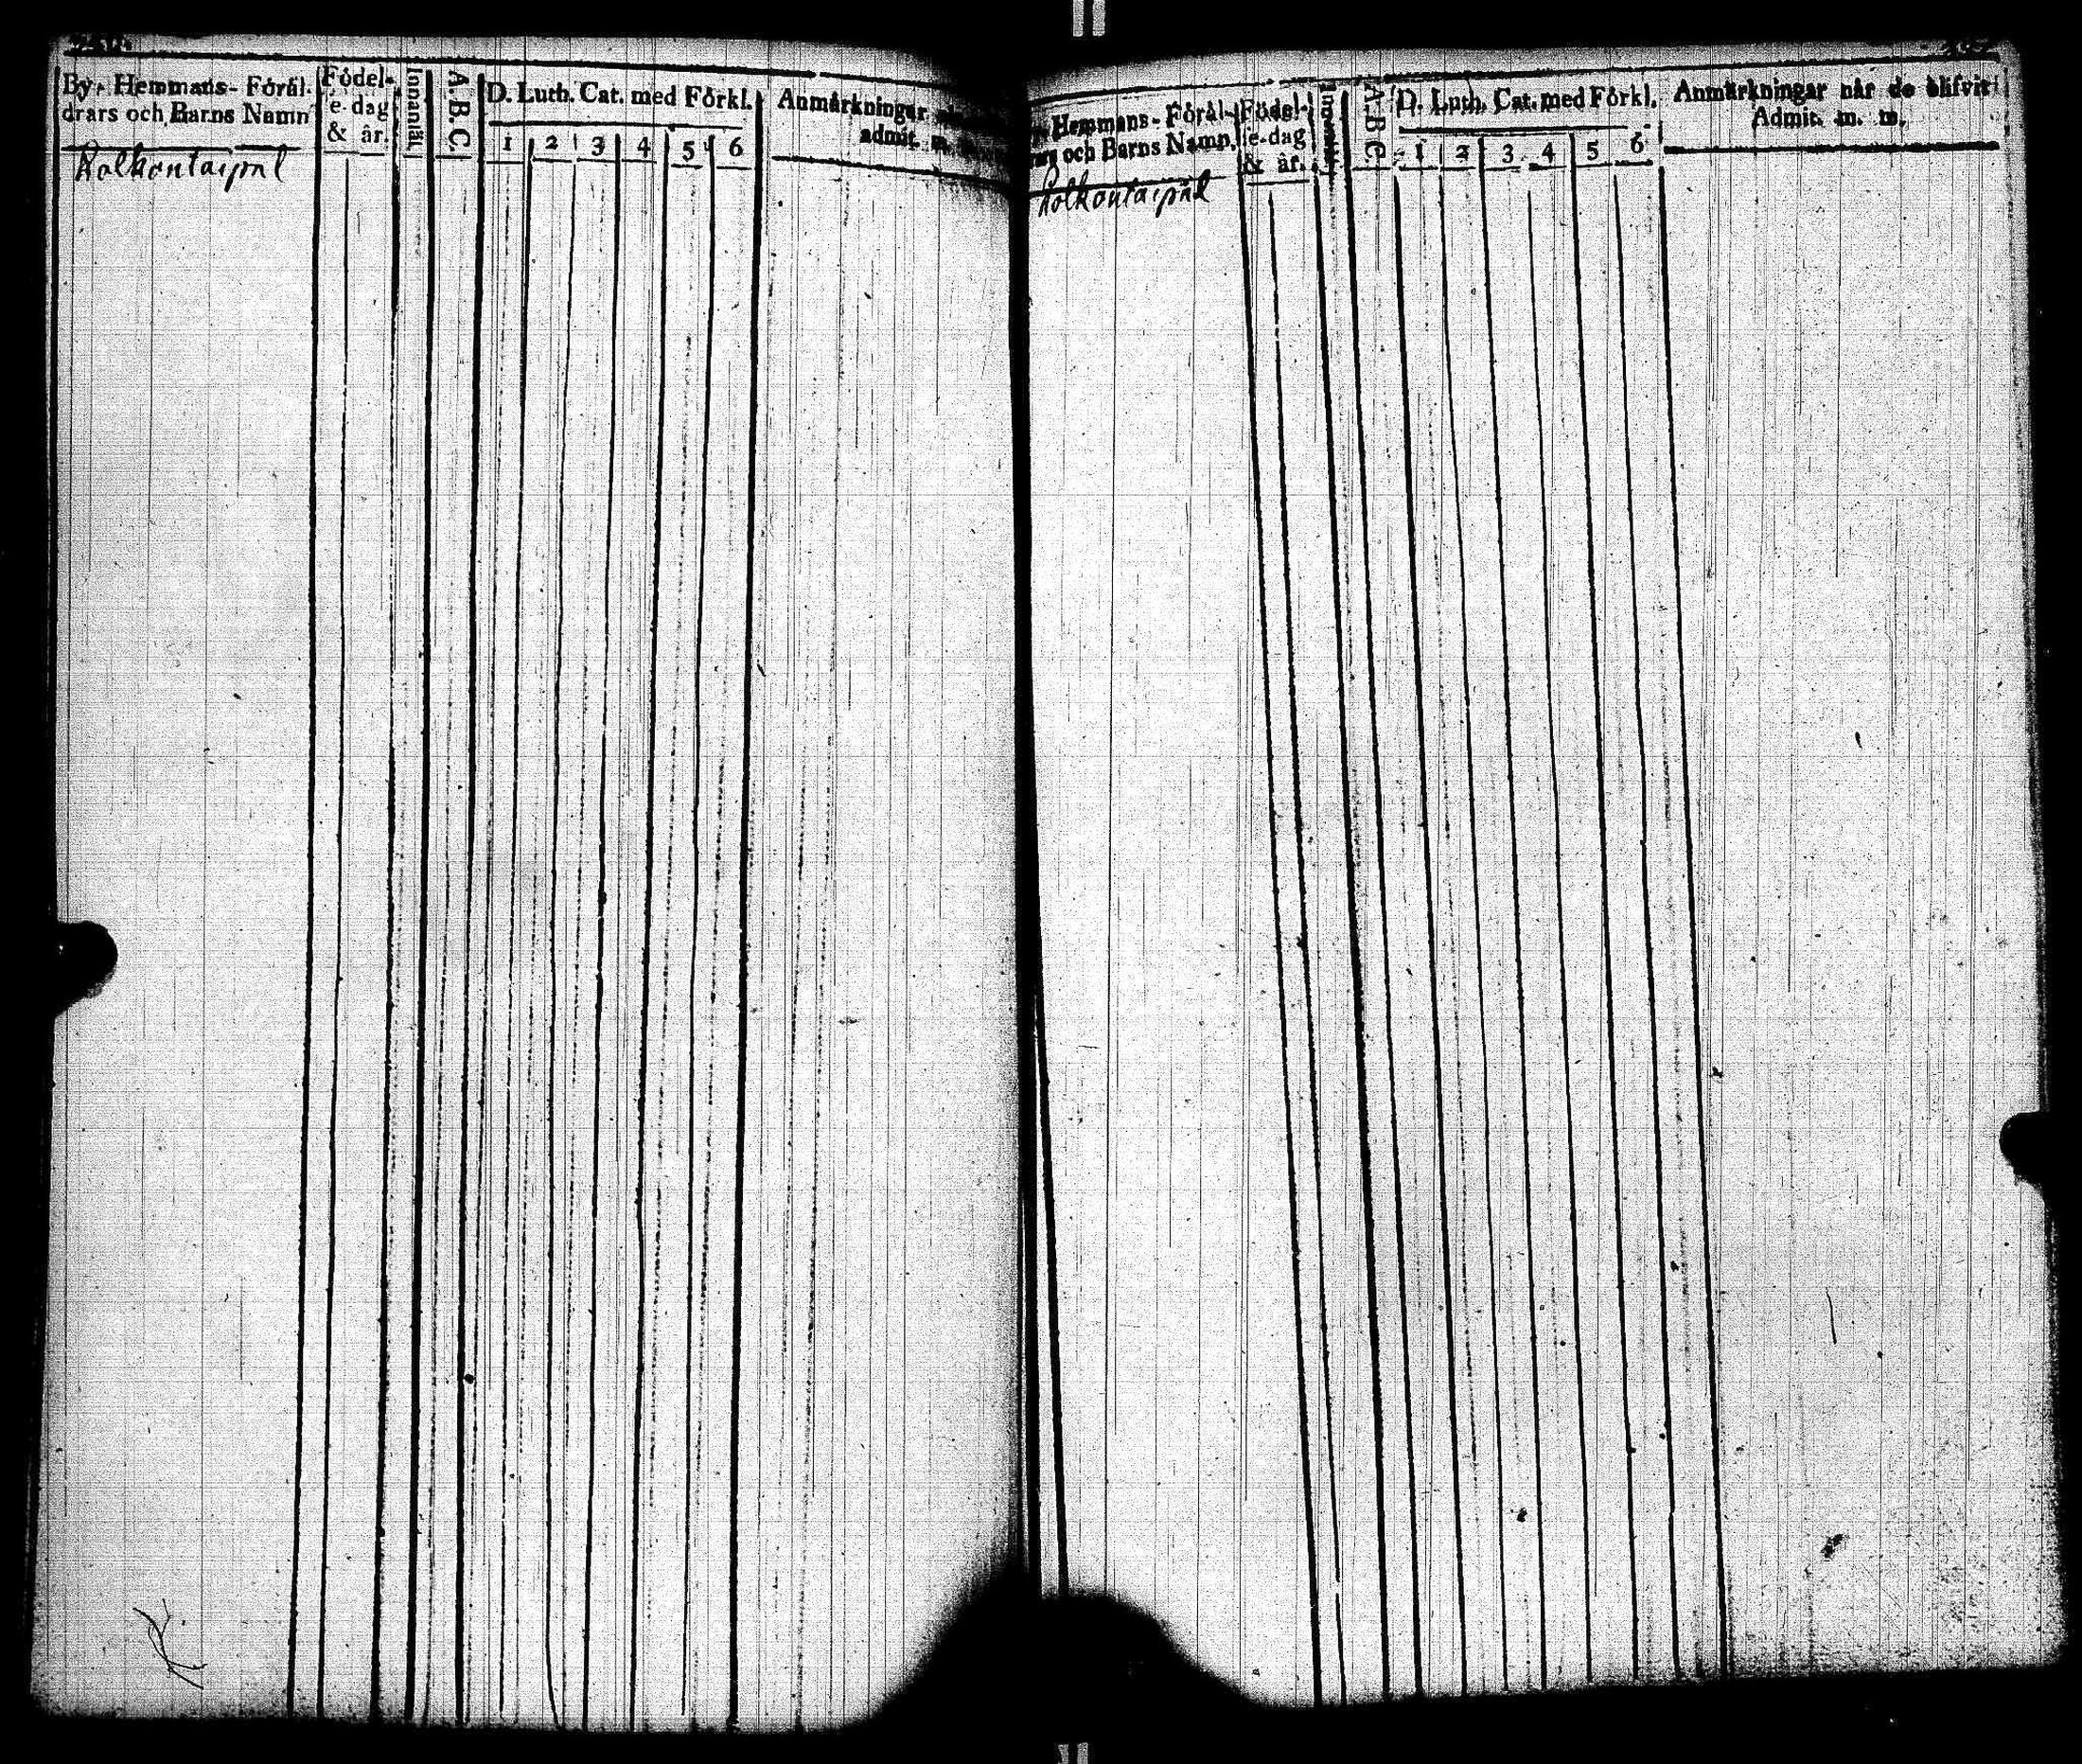 By, Hemmans- Föräl-
drars och Barns Namn
Födel-
e-dag
& år.
Innantäl
A-B-C.
D. Luth. Cat. med Förkl.
1 2 3 4 5 6
Anmärkningar
admit.
Kolkontaipal
Hemmans- Föräl-
och Barns Namn.
Födel-
e-dag
& år.
A-B-C.
D. Luth. Cat. med Förkl.
1 2 3 4 5 6
Anmärkningar når de blifvit
Admit. m. m.
Kolkontaipal